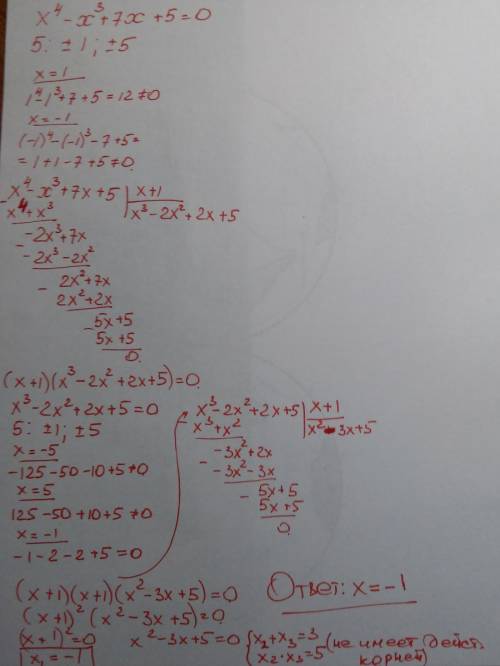 x⁴ - x³ + 7x + 5 = 0
5: ±1; ±5
x = 1
1⁴ - 1³ + 7 + 5 = 12 ≠ 0
x = -1
(-1)⁴ - (-1)³ - 7 + 5 =
= 1 + 1 - 7 + 5 ≠ 0.
- x⁴ - x³ + 7x + 5 | x + 1
x⁴ + x³ | x³ - 2x² + 2x + 5
- -2x³ + 7x
-2x³ - 2x²
- 2x² + 7x
2x² + 2x
- 5x + 5
5x + 5
0.
(x+1)(x³ - 2x² + 2x + 5) = 0.
x³ - 2x² + 2x + 5 = 0
5: ±1; ±5
x = -5
-125 - 50 - 10 + 5 ≠ 0
x = 5
125 - 50 + 10 + 5 ≠ 0
x = -1
-1 - 2 - 2 + 5 = 0
- x³ - 2x² + 2x + 5 | x + 1
x³ + x² | x² - 3x + 5
- -3x² + 2x
-3x² - 3x
- 5x + 5
5x + 5
0.
(x+1)(x+1)(x² - 3x + 5) = 0
Ответ: x = -1
(x+1)² (x² - 3x + 5) = 0.
(x+1)² = 0
x₁ = -1
x² - 3x + 5 = 0 { x₂ + x₃ = 3
x₂ · x₃ = 5
(не имеет дейст.
корней)